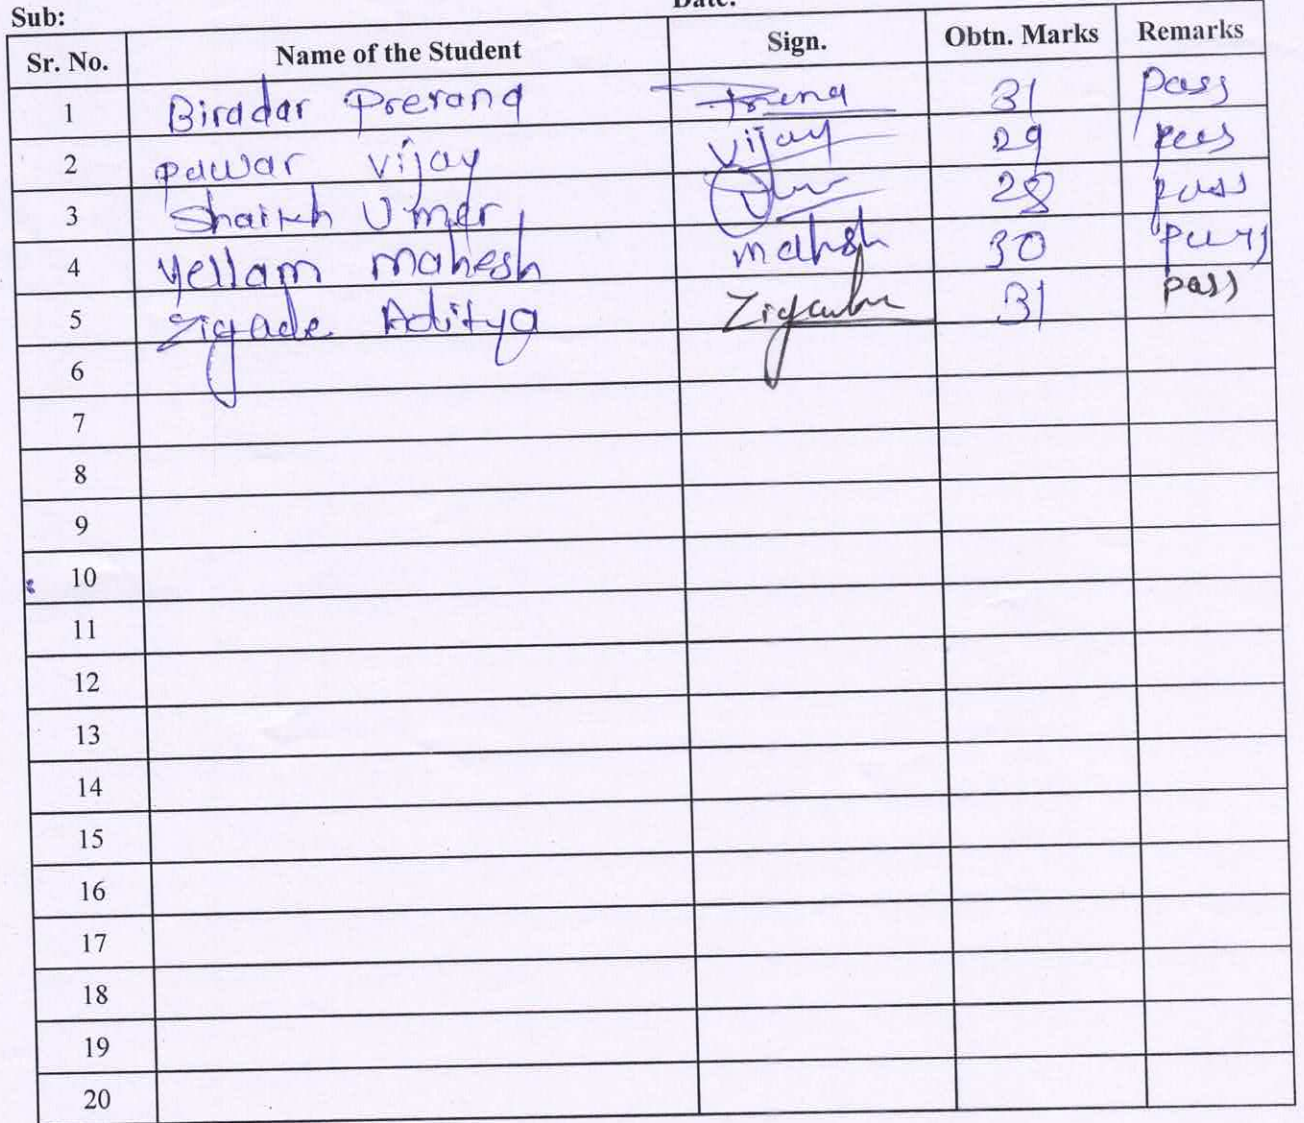 Sub: Date:
Sr. No. Name of the Student Sign. Obtn. Marks Remarks
1 Biradar Prerana 31 pass
2 pawar vijay vijay 29 pass
3 Shaikh Umer 28 pass
4 Yellam mahesh mahsh 30 pass
5 zigade Aditya 31 pass
6
7
8
9
10
11
12
13
14
15
16
17
18
19
20